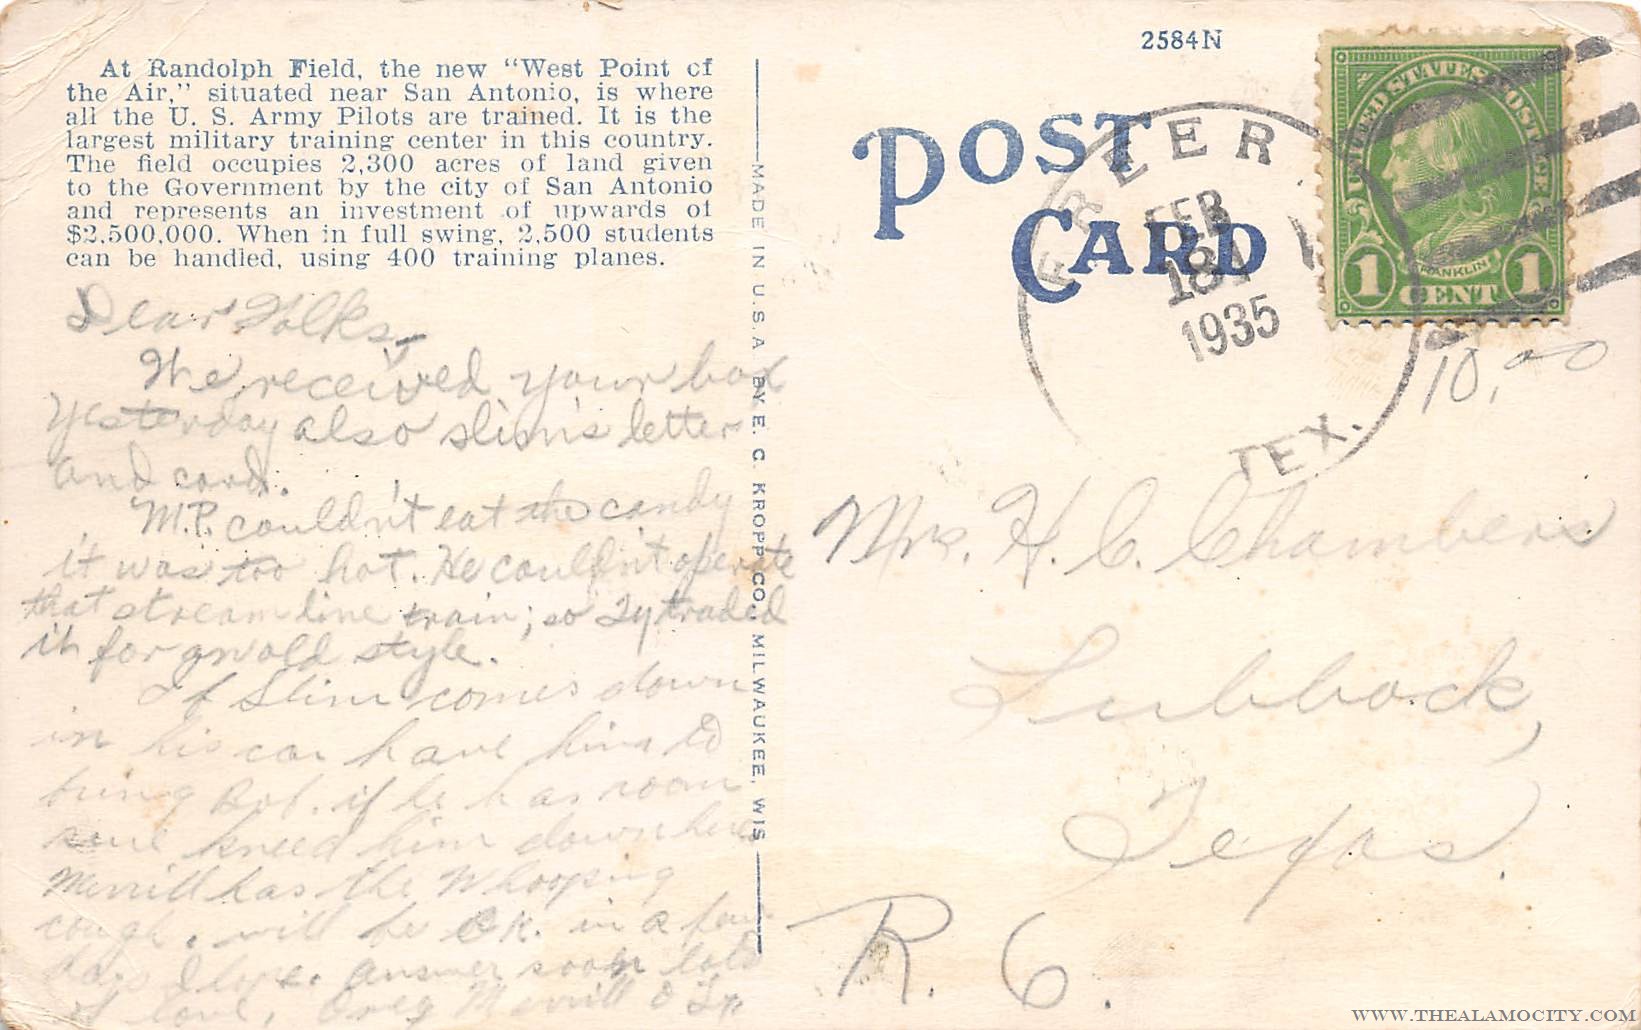 At Randolph Field, the new "West Point of
the Air," situated near San Antonio, is where
all the U. S. Army Pilots are trained. It is the
largest military training center in this country.
The field occupies 2,300 acres of land given
to the Government by the city of San Antonio
and represents an investment of upwards of
$2,500,000. When in full swing, 2,500 students
can be handled, using 400 training planes.
Dear Folks,
We received your box
yesterday also slim's letter
and card.
M.P. couldn't eat the candy
it was too hot. He couldn't operate
that streamline train; so Ty traded
it for an old style.
If Slim comes down
in his car have him to
bring Bob. if he has room
need him down here
Merrill has the Whooping
cough. will be O.K. in a few
days I hope. answer soon lots
of love, Merrill & Ty
MADE IN U.S.A. BY E. C. KROPP CO., MILWAUKEE, WIS.
2584N
POST
CARD
FREER
FEB
18
1935
TEX.
UNITED STATES POSTAGE
FRANKLIN
1 CENT 1
10.00
Mrs. H. C. Chambers
Lubbock,
Texas.
R. 6.
WWW.THEALAMOCITY.COM